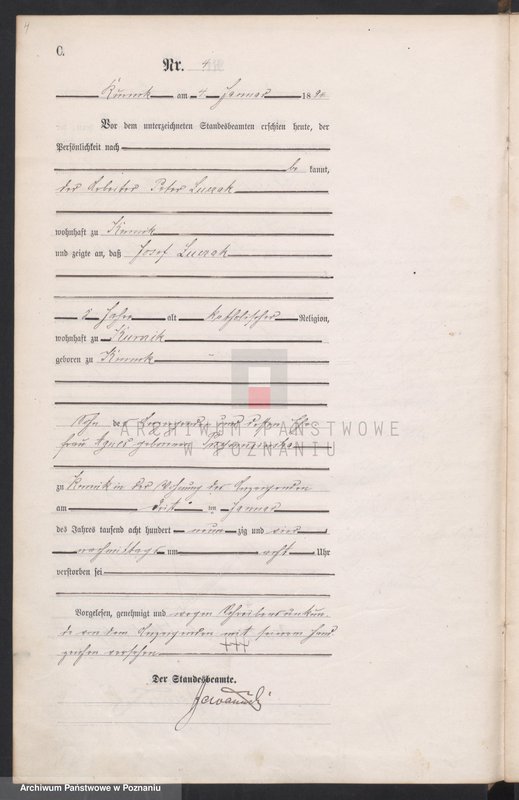 4
C.
Nr. 4
Kurnik am 4 Januar 189
Vor dem unterzeichneten Standesbeamten erschien heute, der
Persönlichkeit nach
be kannt,
der Arbeiter Peter Luczak
wohnhaft zu Kurnik
und zeigte an, daß Josef Luczak
Jahre alt katholischer Religion,
wohnhaft zu Kurnik
geboren zu Kurnik
Sohn des Anzeigenden und dessen Ehe
frau Agnes geborenen
ARCHIWUM PAŃSTWOWE
W POZNANIU
zu Kurnik in der Wohnung des Anzeigenden
am ten Januar
des Jahres tausend acht hundert neun zig und vier
nachmittags um acht Uhr
verstorben sei
Vorgelesen, genehmigt und wegen Schreibensunkun-
de von dem Anzeigenden mit seinem Hand
zeichen versehen
+++
Der Standesbeamte.
Archiwum Państwowe w Poznaniu